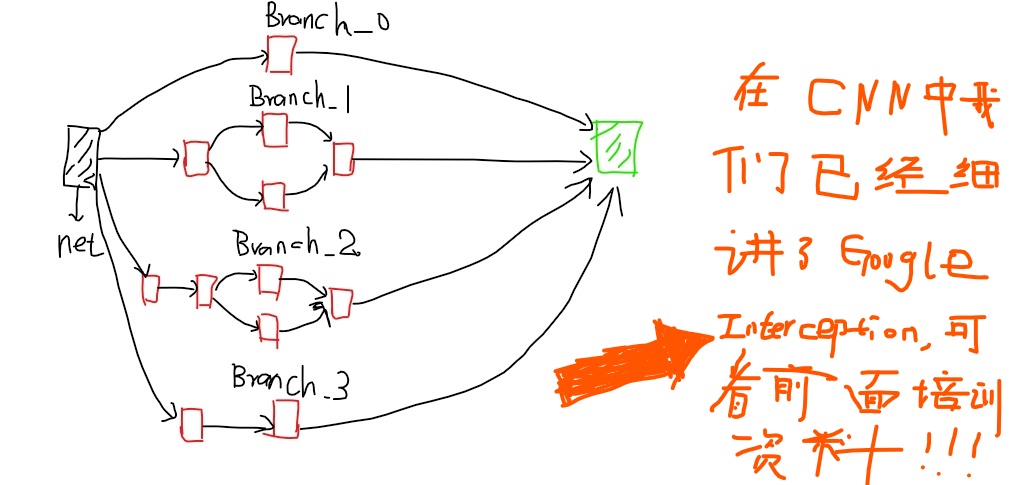 Branch_0
Branch_1
net
Branch_2
Branch_3
在 CNN中我
们已经细
讲了Google
Interception,可
看前面培训
资料!!!